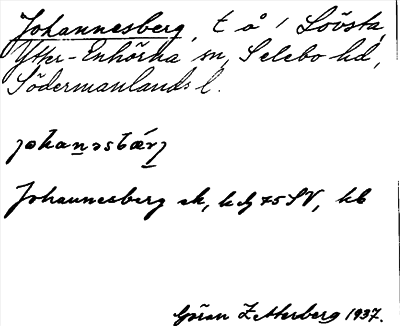 Johannesberg, t å 1 Lövsta,
Ytter-Enhörna sn, Selebo hd,
Södermanlands l.
Johannesberg ek, kbl 75 SV, kb
Göran Zetterberg 1937.